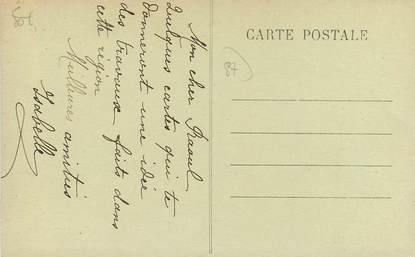 Mon cher Raoul
Quelques cartes qui te
donneront une idée
des travaux faits dans
cette région
Meilleures amitiés
Isabelle
CARTE POSTALE